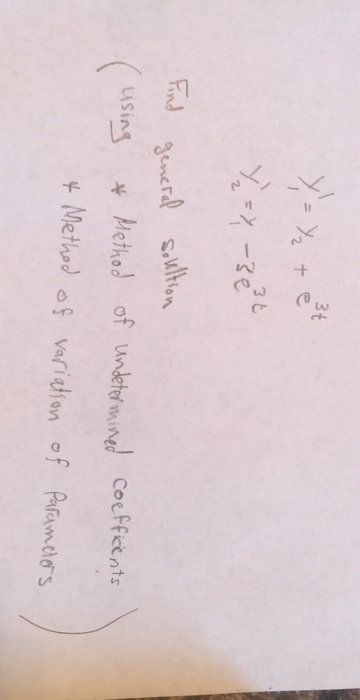 y₁' = y₂ + e³ᵗ
y₂' = y₁ - 3e³ᵗ
Find general solution
(using * Method of undetermined coefficients
* Method of variation of Parameters)